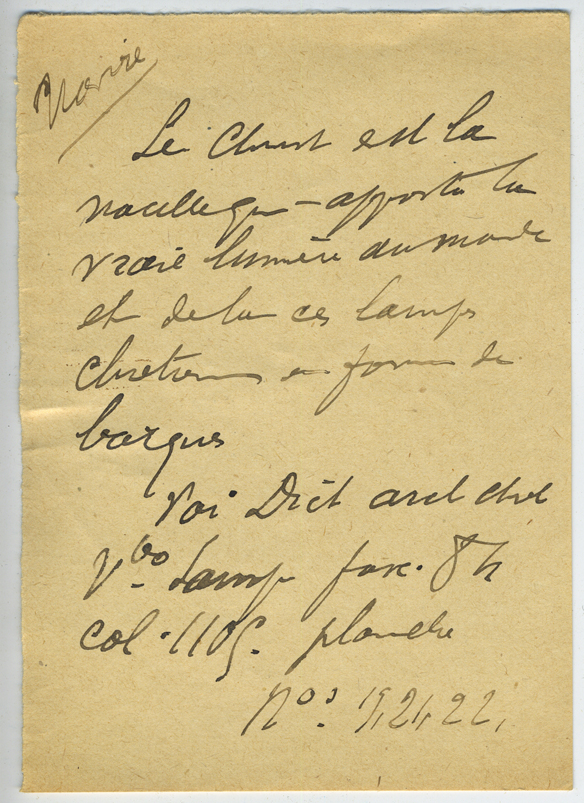 Navire
Le Christ est la
nacelle qui apporta la
vraie lumière au monde
et de la ces lamps
chretiennes en forme de
barques
Voir Dict arch chret
Vbo Lamp fasc. 84
col. 1105. planche
Nos 19, 21, 22,